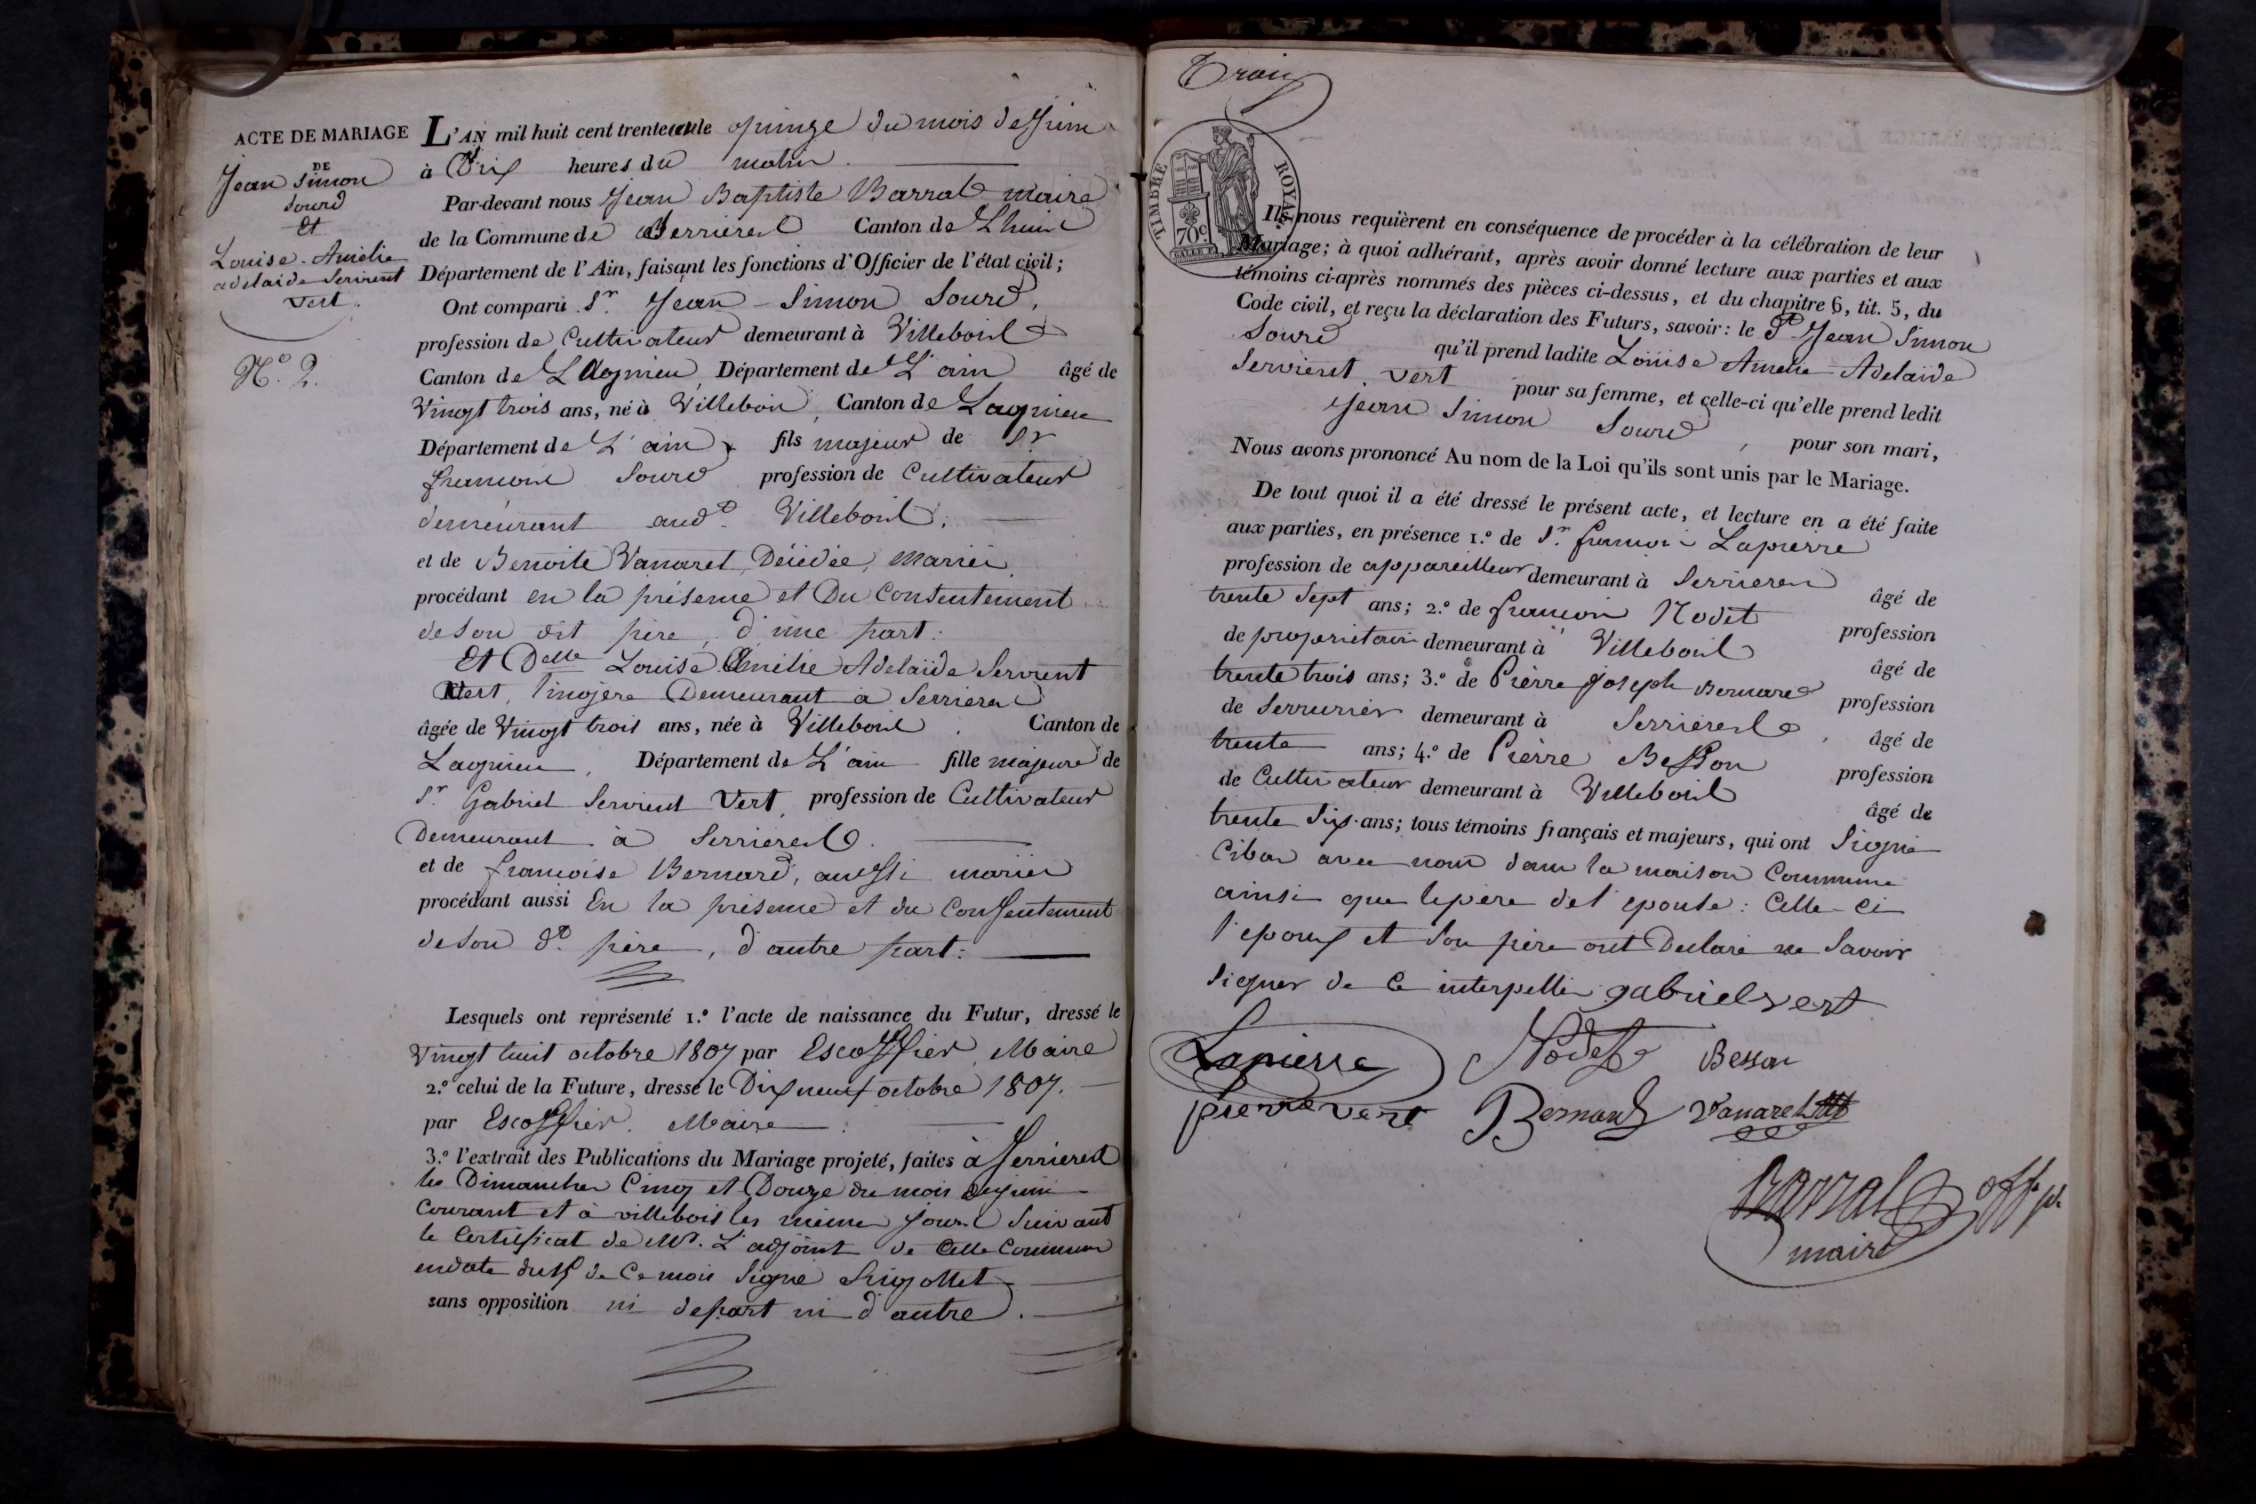 ACTE DE MARIAGE
DE
Jean Simon
Sourd
Et
Louise-Amelie
adelaide Servient
Vert.
N.º 2.
L'AN mil huit cent trente et le quinze du mois de Juin
à Dix heures du matin.
Par-devant nous Jean Baptiste Barral maire
de la Commune de Serrieres Canton de Lhuis
Département de l'Ain, faisant les fonctions d'Officier de l'état civil;
Ont comparu S.r Jean-Simon Sourd,
profession de Cultivateur demeurant à Villebois
Canton de Lagnieu, Département de L'ain âgé de
Vingt trois ans, né à Villebois, Canton de Lagnieu
Département de L'ain, fils majeur de S.r
francois Sourd profession de Cultivateur
demeurant aud.t Villebois.
et de Benoite Vanaret, Décédée, mariés
procédant en la présence et Du Consentement
de son dit père, d'une part:
Et Delle Louise Emilie Adelaïde Servient
Vert, lingère Demeurant à Serrieres
âgée de Vingt trois ans, née à Villebois. Canton de
Lagnieu, Département de L'ain fille majeure de
S.r Gabriel Servient Vert, profession de Cultivateur
Demeurant à Serrieres.
et de francoise Bernard, aussi mariés
procédant aussi En la présence et du Consentement
de son d.t père, d'autre part:
Lesquels ont représenté 1.º l'acte de naissance du Futur, dressé le
Vingt huit octobre 1807 par Escoffier, Maire
2.º celui de la Future, dressé le Dix neuf octobre 1807.
par Escoffier. Maire.
3.º l'extrait des Publications du Mariage projeté, faites à Serrieres
les Dimanches Cinq et Douze du mois de juin
Courant et à villebois les mêmes jours Suivant
le Certificat de Mr. L'adjoint de Celle Commune
en date du 15 de Ce mois Signé
sans opposition ni de part ni d'autre.
Trois
TIMBRE ROYAL
70.c
Ils nous requièrent en conséquence de procéder à la célébration de leur
Mariage; à quoi adhérant, après avoir donné lecture aux parties et aux
témoins ci-après nommés des pièces ci-dessus, et du chapitre 6, tit. 5, du
Code civil, et reçu la déclaration des Futurs, savoir: le d.t Jean Simon
Sourd qu'il prend ladite Louise Amelie Adelaïde
Servient Vert pour sa femme, et celle-ci qu'elle prend ledit
Jean Simon Sourd, pour son mari,
Nous avons prononcé Au nom de la Loi qu'ils sont unis par le Mariage.
De tout quoi il a été dressé le présent acte, et lecture en a été faite
aux parties, en présence 1.º de S.r francois Lapierre
profession de appareilleur demeurant à Serrieres âgé de
trente Sept ans; 2.º de francois Nodet profession
de proprietaire demeurant à Villebois âgé de
trente trois ans; 3.º de Pierre joseph Bernard profession
de Serrurier demeurant à Serrieres, âgé de
trente ans; 4.º de Pierre Besson profession
de Cultivateur demeurant à Villebois âgé de
trente Six ans; tous témoins français et majeurs, qui ont Signé
Cibas avec nous dans la maison Commune
ainsi que le père de l'epouse: Celle-Ci
l'epoux et Son père ont Declaré ne Savoir
Signer de Ce interpellés gabriel vert
Lapierre Nodet Besson
pierre vert Bernard Vanaret
Barral off.
maire